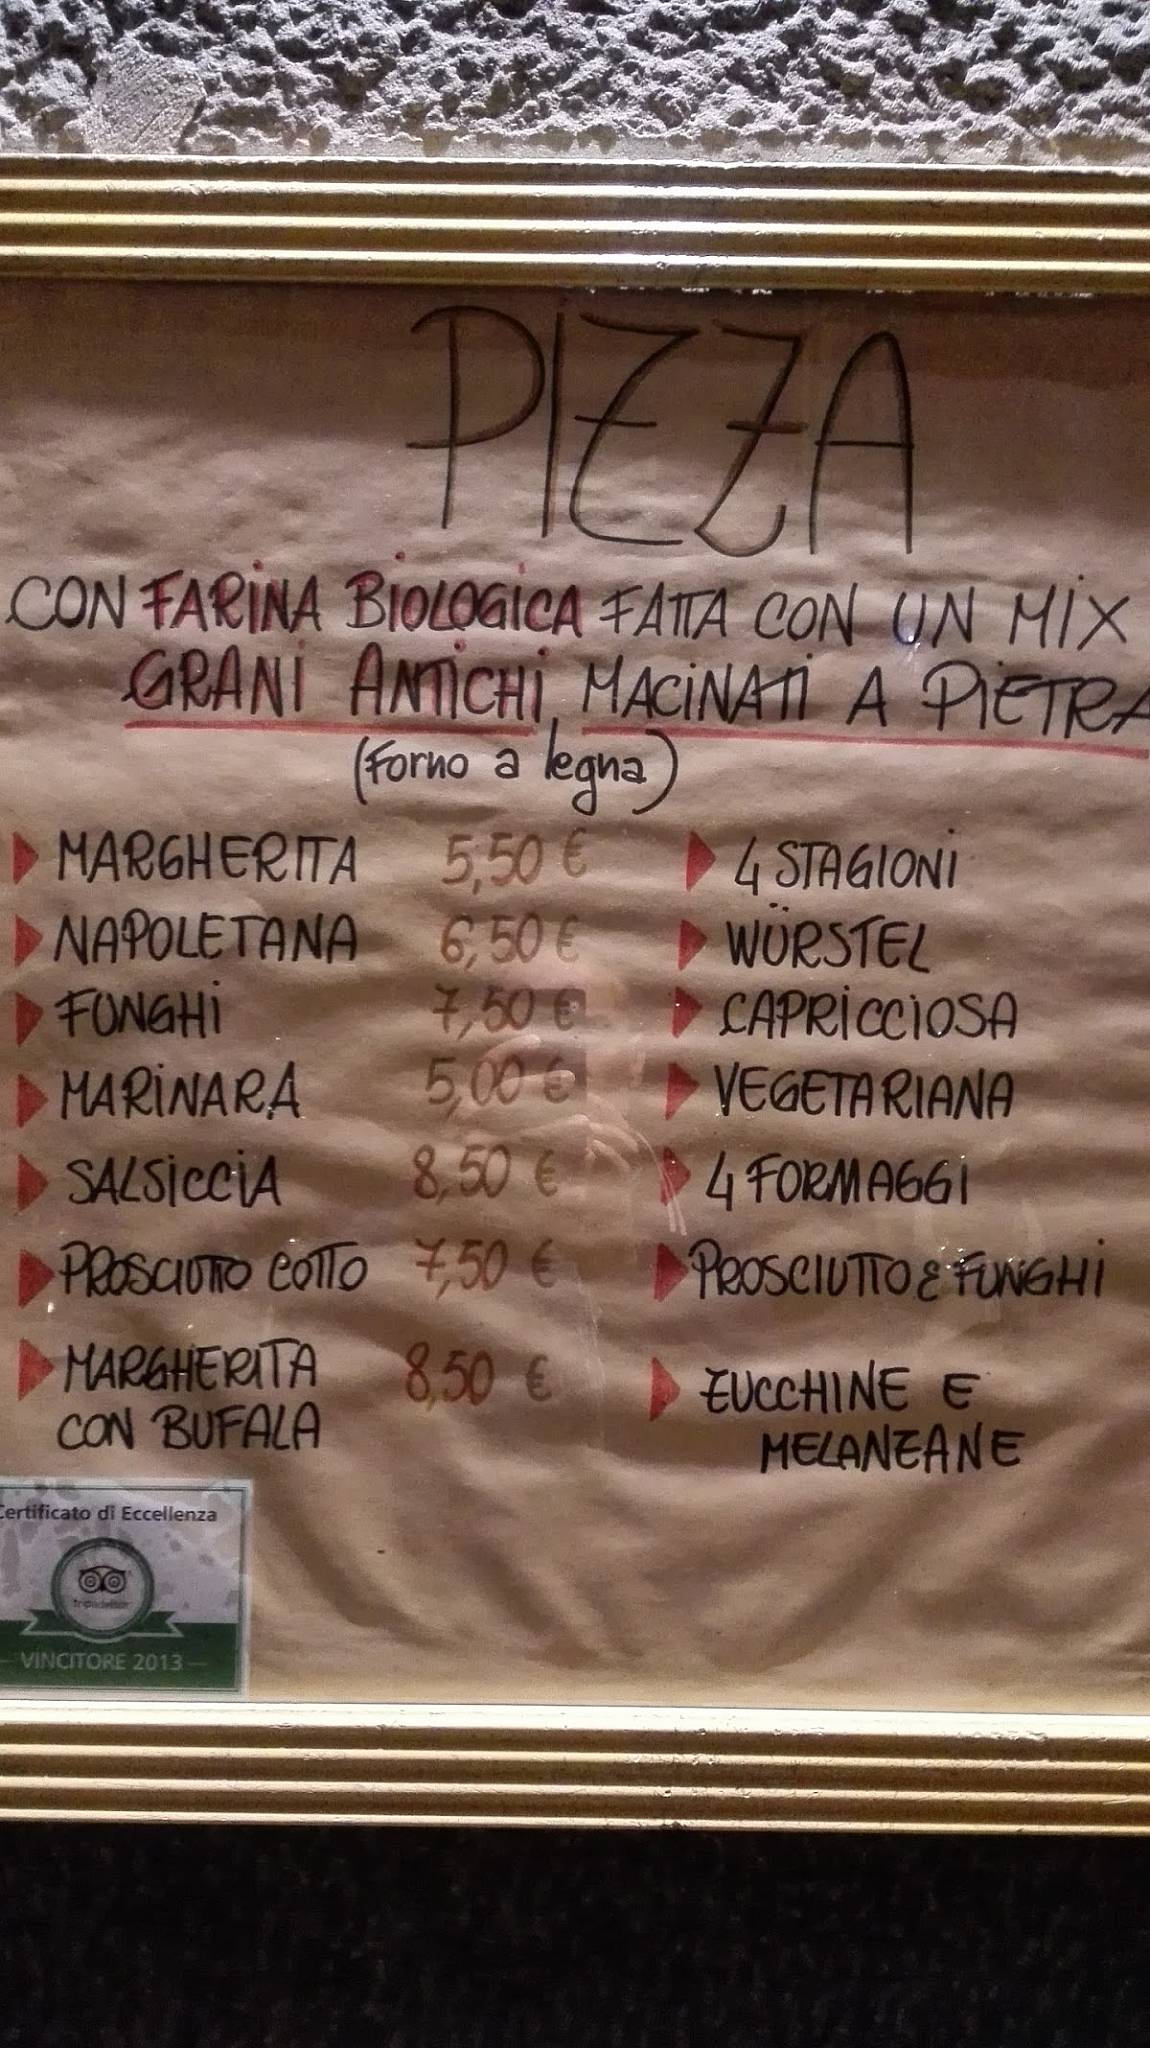 PIZZA
CON FARINA BIOLOGICA FATTA CON UN MIX
GRANI ANTICHI, MACINATI A PIETRA
(Forno a legna)
MARGHERITA 5,50 €
NAPOLETANA 6,50 €
FUNGHI 7,50 €
MARINARA 5,00 €
SALSICCIA 8,50 €
PROSCIUTTO COTTO 7,50 €
MARGHERITA 8,50 €
CON BUFALA
4 STAGIONI
WÜRSTEL
CAPRICCIOSA
VEGETARIANA
4 FORMAGGI
PROSCIUTTO E FUNGHI
ZUCCHINE E
MELANZANE
Certificato di Eccellenza
tripadvisor
VINCITORE 2013